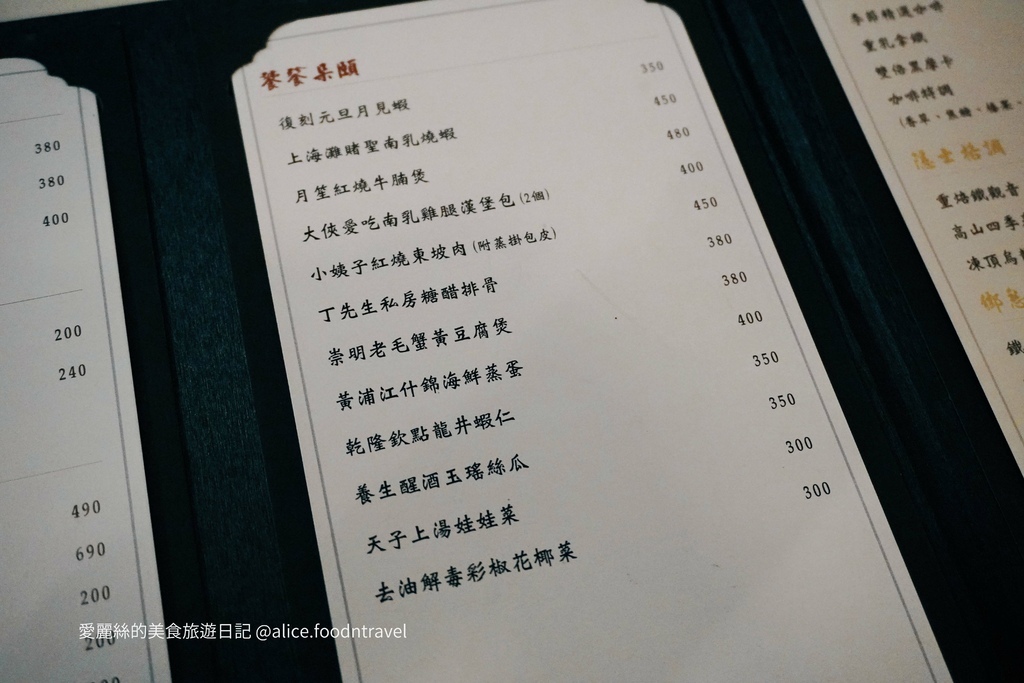 380
380
400
200
240
490
690
200
200
饕餮朵頤
復刻元旦月見蝦 350
上海灘賭聖南乳燒蝦 450
月笙紅燒牛腩煲 480
大俠愛吃南乳雞腿漢堡包(2個) 400
小姨子紅燒東坡肉(附蒸掛包皮) 450
丁先生私房糖醋排骨 380
崇明老毛蟹黃豆腐煲 380
黃浦江什錦海鮮蒸蛋 400
乾隆欽點龍井蝦仁 350
養生醒酒玉瑤絲瓜 350
天子上湯娃娃菜 300
去油解毒彩椒花椰菜 300
季節精選咖啡
重乳拿鐵
雙倍黑摩卡
咖啡特調
(香草、焦糖、榛果、
隱士格調
重焙鐵觀音
高山四季
凍頂烏
鐵
愛麗絲的美食旅遊日記 @alice.foodntravel